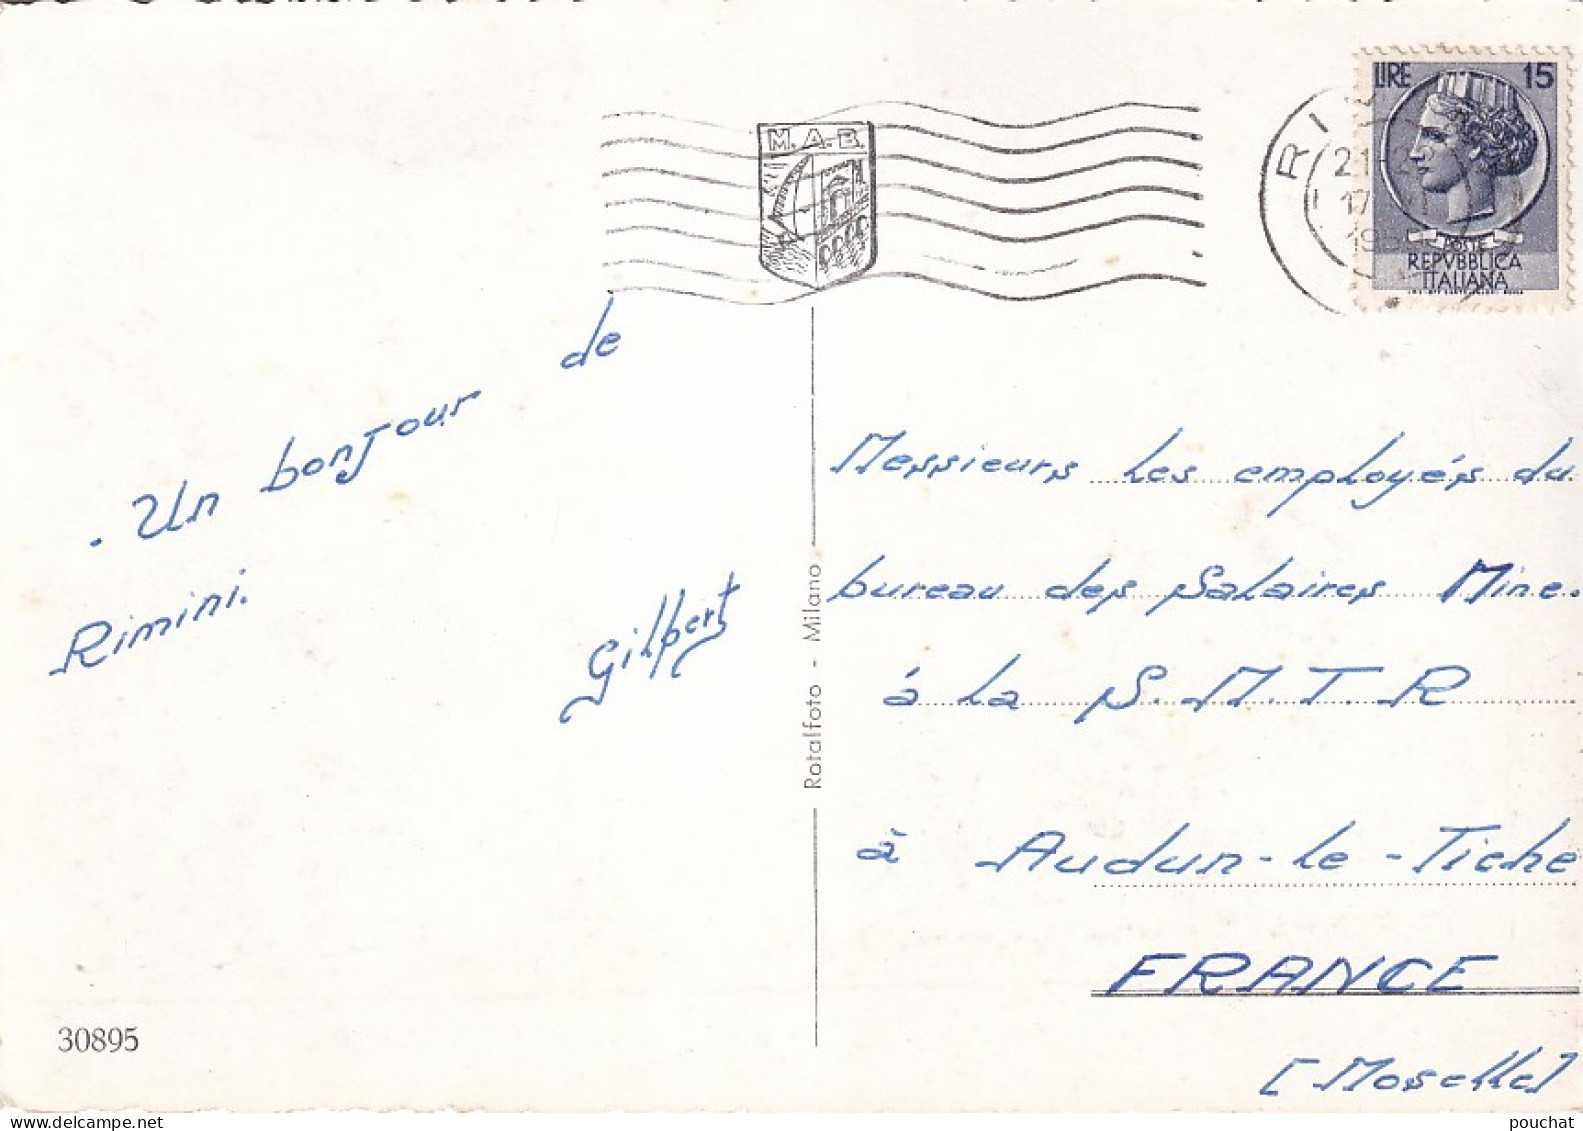 LIRE 15
M.A.B.
POSTE
REPVBBLICA
ITALIANA
. Un bonjour de
Rimini.
Gilbert
Messieurs les employés du
bureau des Salaires Mine.
à la S.M.T.R
à Audun-le-Tiche
FRANCE
[Moselle]
Rotalfoto - Milano
30895
delcampe.net
pouchat